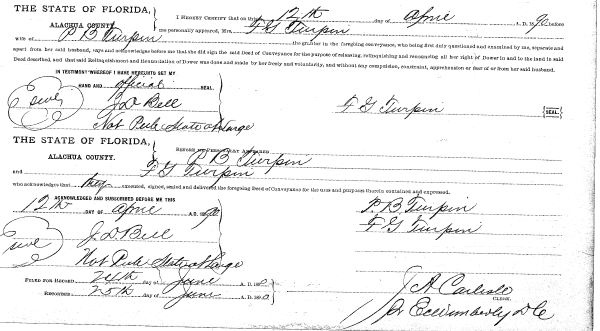 THE STATE OF FLORIDA,
ALACHUA COUNTY.
I HEREBY CERTIFY that on this 12th day of April A. D. 189 before
me personally appeared, Mrs. F G Turpin
wife of P B Turpin the grantor in the foregoing conveyance, who being first duly questioned and examined by me, separate and
apart from her said husband, says and acknowledges before me that she did sign the said Deed of Conveyance for the purpose of releasing, relinquishing and renouncing all her right of Dower in and to the land in said
Deed described, and that said Relinquishment and Renunciation of Dower was done and made by her freely and voluntarily, and without any compulsion, constraint, apprehension or fear of or from her said husband.
IN TESTIMONY WHEREOF I HAVE HEREUNTO SET MY
HAND AND official SEAL.
J D Bell
Not Pub State at Large
F G Turpin {SEAL.}
THE STATE OF FLORIDA,
ALACHUA COUNTY.
BEFORE ME PERSONALLY APPEARED P B Turpin
and F G Turpin
who acknowledges that they executed, signed, sealed and delivered the foregoing Deed of Conveyance for the uses and purposes therein contained and expressed.
ACKNOWLEDGED AND SUBSCRIBED BEFORE ME THIS
12th DAY OF April A. D. 189
P. B. Turpin
F G Turpin
J. D. Bell
Not Pub State at Large
FILED FOR RECORD 24th day of June A. D. 189
RECORDED 25th day of June A. D. 189
J A Carlisle
CLERK.
Pr E C Wimberly D C